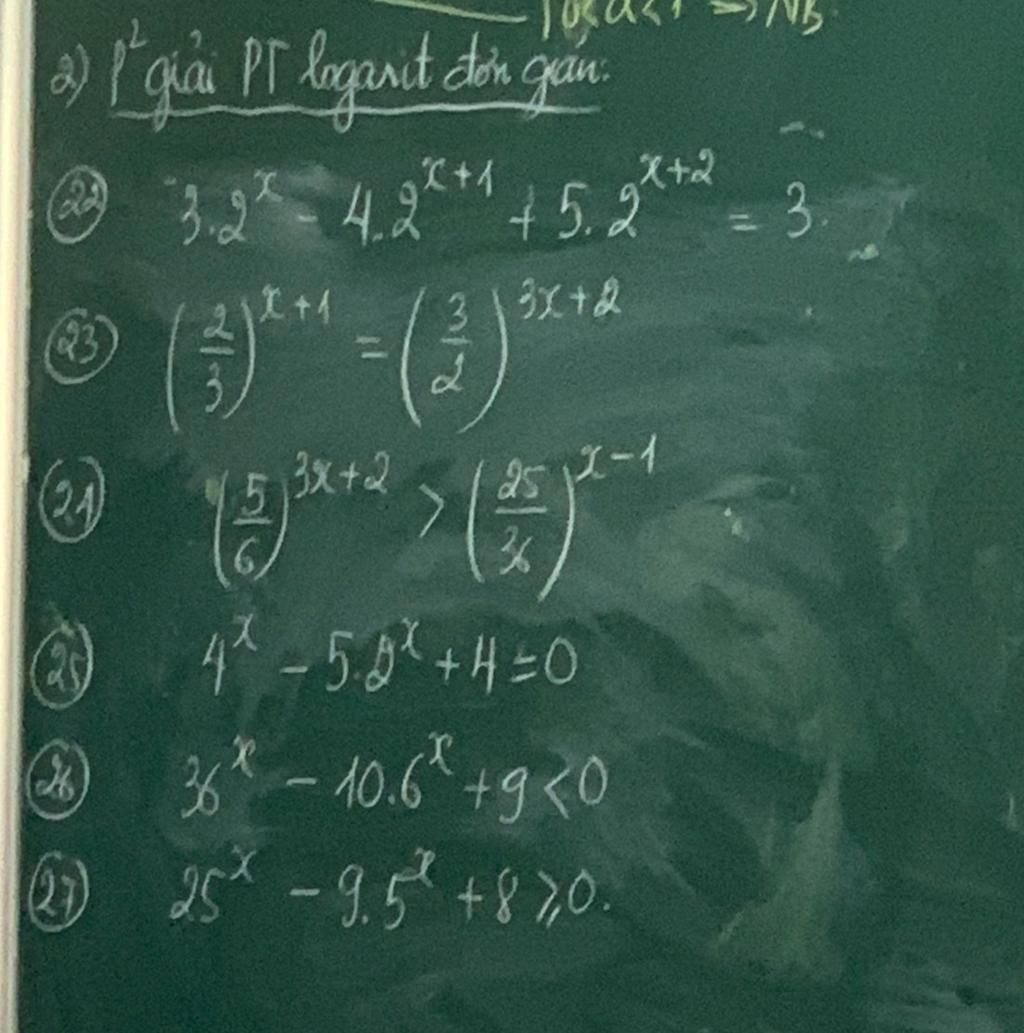 10<a<1 => NB.
2) P² giải PT logarit đơn giản:
(22) 3.2^x - 4.2^{x+1} + 5.2^{x+2} = 3.
(23) (2/3)^{x+1} = (3/2)^{3x+2}
(24) (5/6)^{3x+2} > (25/36)^{x-1}
(25) 4^x - 5.2^x + 4 = 0
(26) 36^x - 10.6^x + 9 < 0
(27) 25^x - 9.5^x + 8 ⩾ 0.